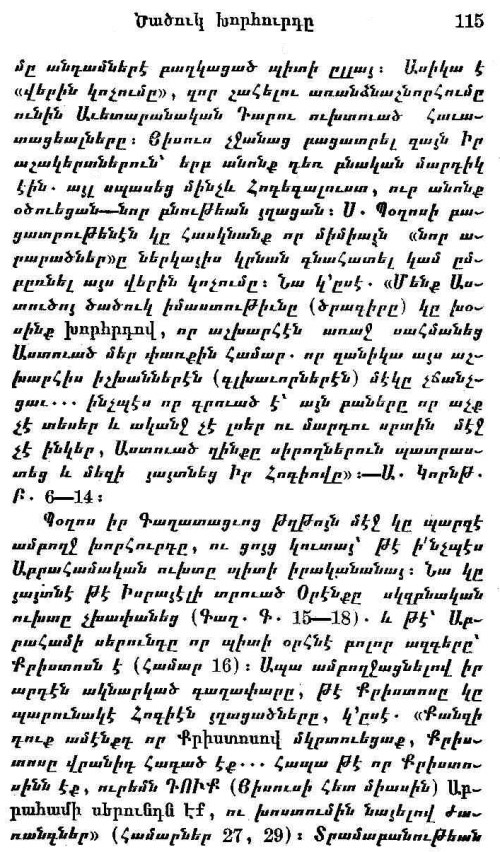 Ծածուկ Խորհուրդը 115
մը անդամներէ բաղկացած պիտի ըլլայ։ Ասիկա է
«վերին կոչումը», զոր շահելու առանձնաշնորհումը
ունին Աւետարանական Դարու ուխտուած Հաւա-
տացեալները։ Յիսուս չջանաց բացատրել զայն Իր
աշակերտներուն՝ երբ անոնք դեռ բնական մարդիկ
էին. այլ սպասեց մինչև Հոգեգալուստ, ուր անոնք
օծուեցան—նոր բնութեան յղացան։ Ս. Պօղոսի բա-
ցատրութենէն կը հասկնանք որ միմիայն «նոր ա-
րարածներ»ը ներկայիս կրնան գնահատել կամ ըմ-
բըռնել այս վերին կոչումը։ Նա կ՚ըսէ. «Մենք Աս-
տուծոյ ծածուկ իմաստութիւնը (ծրագիրը) կը խօ-
սինք խորհրդով, որ աշխարհէն առաջ սահմանեց
Աստուած մեր փառքին համար. որ զանիկա այս աշ-
խարհիս իշխաններէն (գլխաւորներէն) մէկը չճանչ-
ցաւ... ինչպէս որ գրուած է՝ այն բաները որ աչք
չէ տեսեր և ականջ չէ լսեր ու մարդու սրտին մէջ
չէ ինկեր, Աստուած զինքը սիրողներուն պատրաս-
տեց և մեզի յայտնեց Իր Հոգիովը»։—Ա. Կորնթ.
Բ. 6—14։
Պօղոս իր Գաղատացւոց թղթոյն մէջ կը պարզէ
ամբողջ խորհուրդը, ու ցոյց կուտայ՝ թէ ի՛նչպէս
Աբրահամական ուխտը պիտի իրականանայ։ Նա կը
յայտնէ թէ Իսրայէլի տրուած Օրէնքը սկզբնական
ուխտը չխափանեց (Գաղ. Գ. 15—18). և թէ՝ Աբ-
րահամի սերունդը որ պիտի օրհնէ բոլոր ազգերը՝
Քրիստոսն է (համար 16)։ Ապա ամբողջացնելով իր
արդէն ակնարկած գաղափարը, թէ Քրիստոսը կը
պարունակէ Հոգիէն յղացածները, կ՚ըսէ. «Քանզի
դուք ամէնքդ որ Քրիստոսով մկրտուեցաք, Քրիս-
տոսը վրանիդ հագած էք... հապա թէ որ Քրիստո-
սինն էք, ուրեմն ԴՈՒՔ (Յիսուսի հետ միասին) Աբ-
րահամի սերունդն էք, ու խոստումին նայելով ժա-
ռանգներ» (համարներ 27, 29)։ Տրամաբանութեան